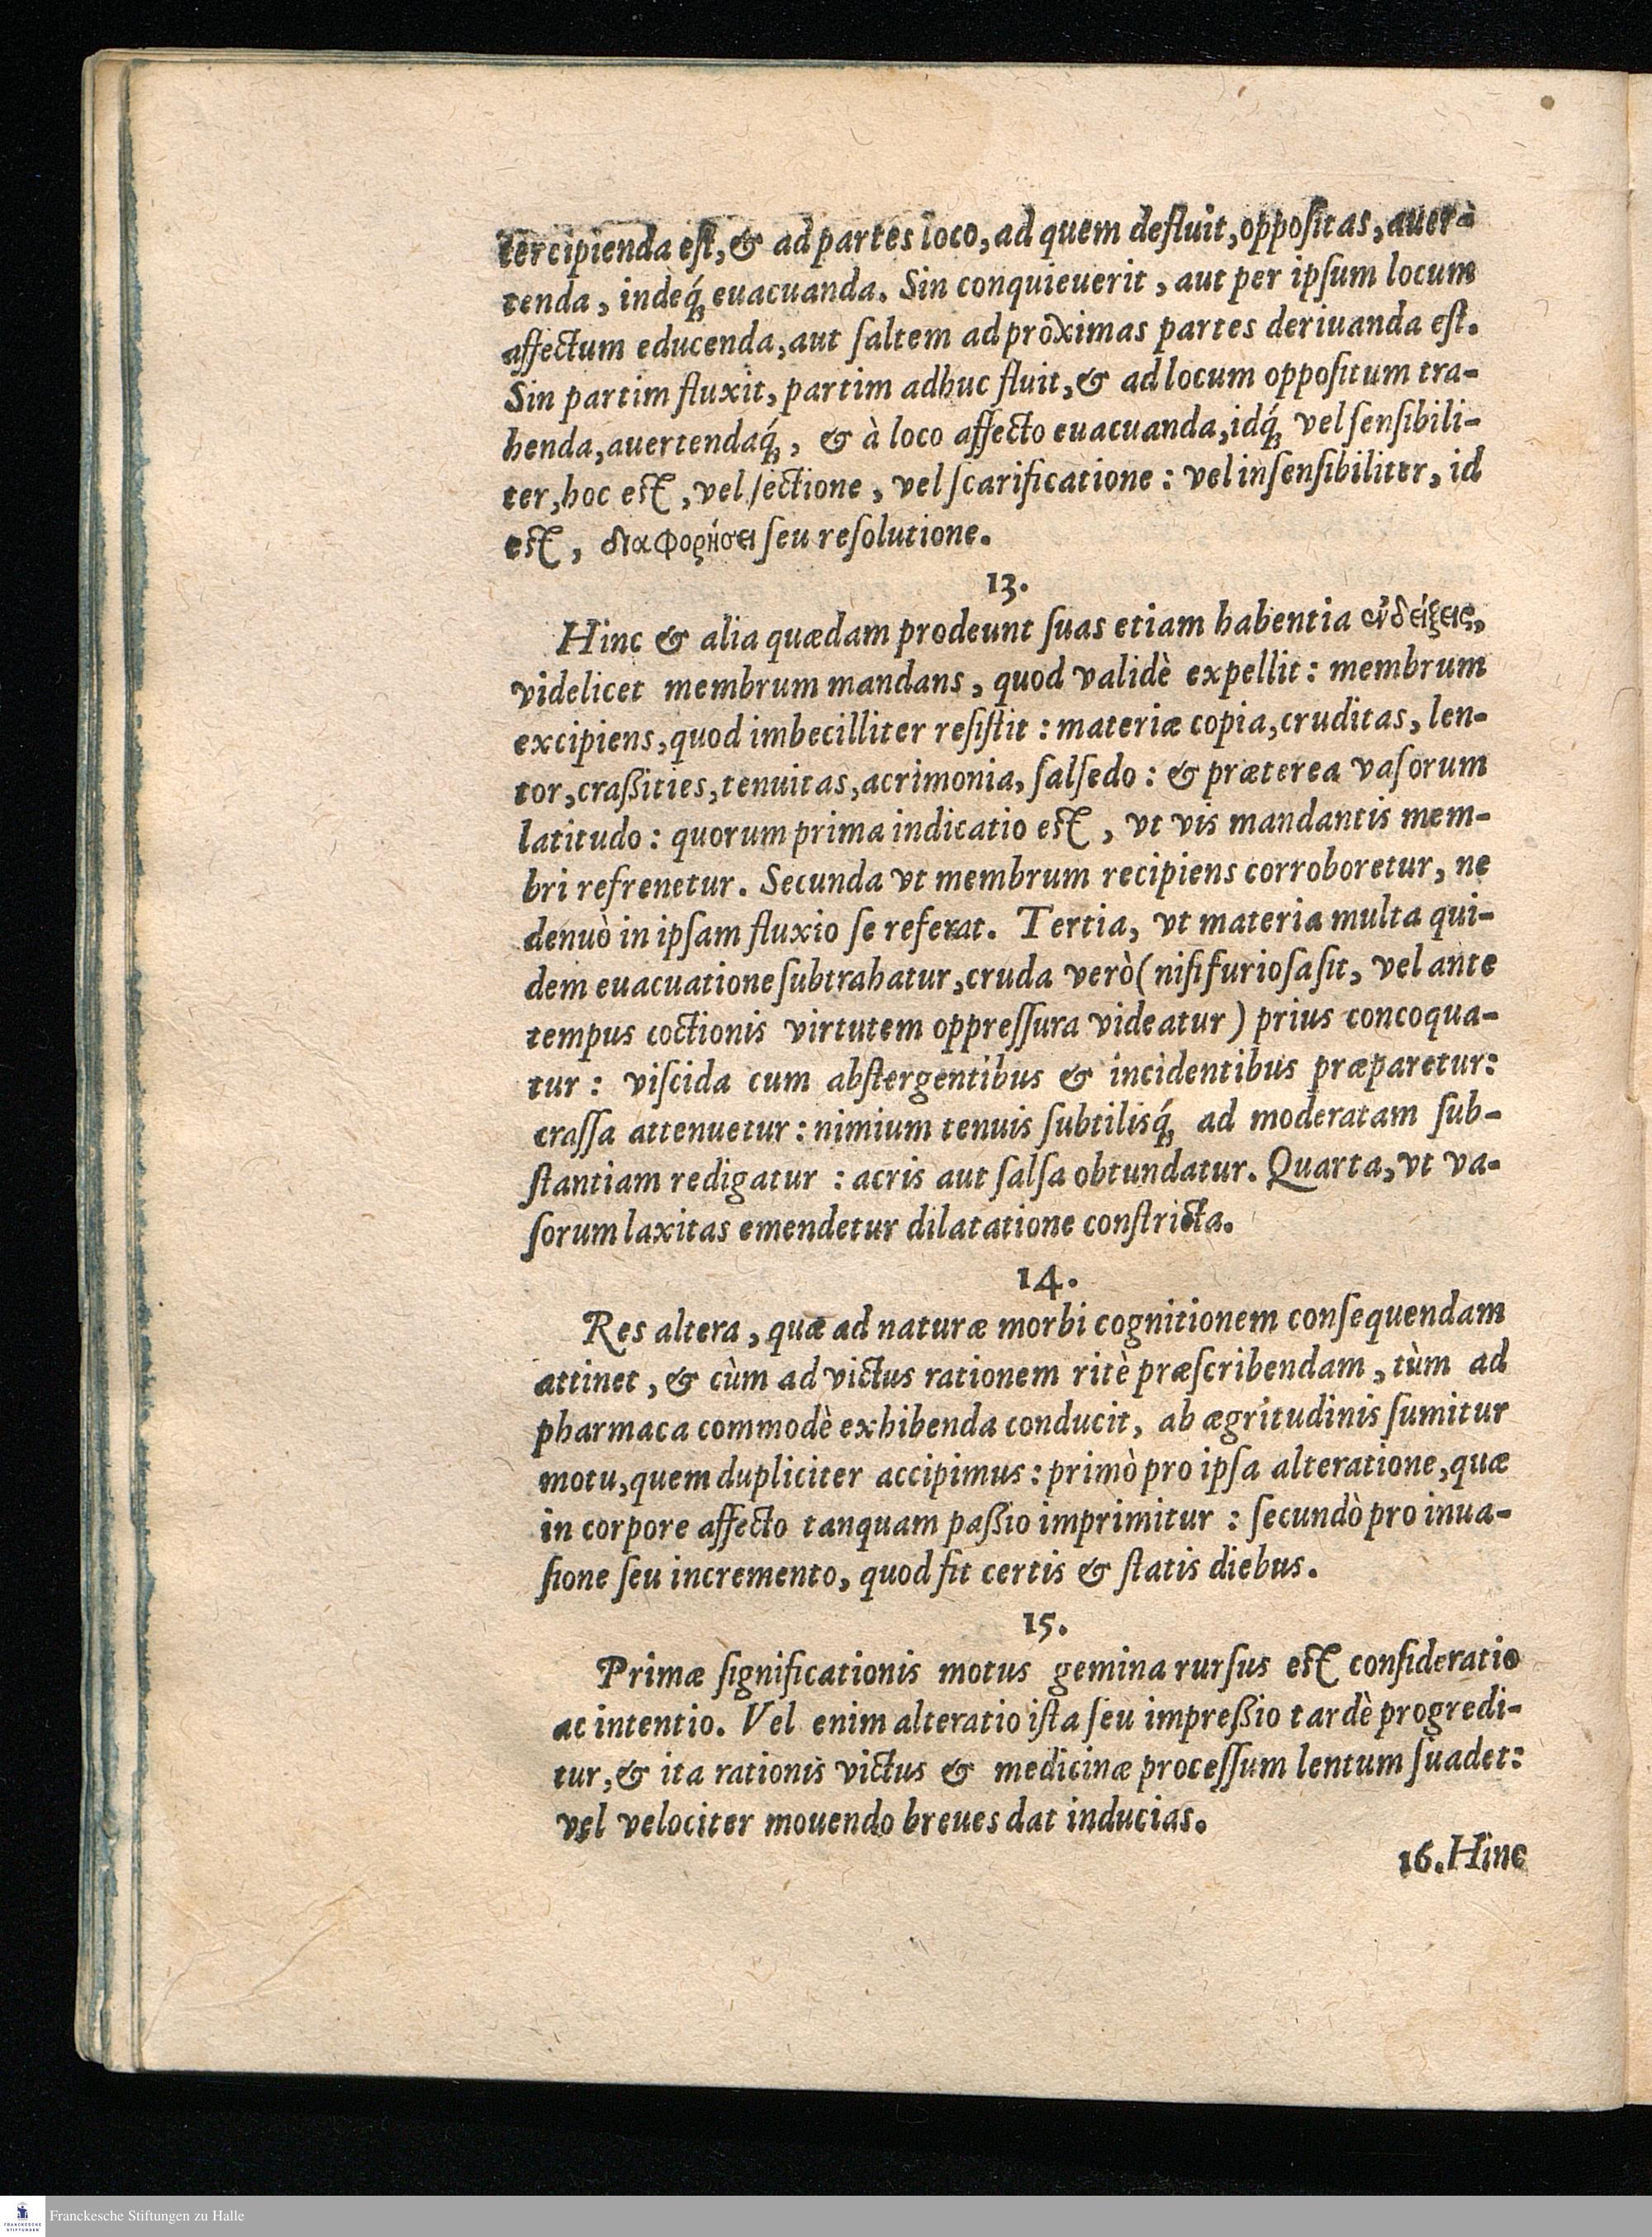 tercipienda eſt, & ad partes loco, ad quem defluit, oppoſitas, auer-
tenda, indeq́; euacuanda. Sin conquieuerit, aut per ipſum locum
affectum educenda, aut ſaltem ad proximas partes deriuanda eſt.
Sin partim fluxit, partim adhuc fluit, & ad locum oppoſitum tra-
henda, auertendaq́;, & à loco affecto euacuanda, idq́; vel ſenſibili-
ter, hoc eſt, vel ſectione, vel ſcarificatione : vel inſenſibiliter, id
eſt, διαφορήσει ſeu reſolutione.
13.
Hinc & alia quædam prodeunt ſuas etiam habentia ἐνδείξεις,
videlicet membrum mandans, quod validè expellit : membrum
excipiens, quod imbecilliter reſiſtit : materiæ copia, cruditas, len-
tor, craßities, tenuitas, acrimonia, ſalſedo : & præterea vaſorum
latitudo : quorum prima indicatio eſt, vt vis mandantis mem-
bri refrenetur. Secunda vt membrum recipiens corroboretur, ne
denuò in ipſam fluxio ſe referat. Tertia, vt materia multa qui-
dem euacuatione ſubtrahatur, cruda verò (niſi furioſa ſit, vel ante
tempus coctionis virtutem oppreſſura videatur) prius concoqua-
tur : viſcida cum abſtergentibus & incidentibus præparetur:
craſſa attenuetur : nimium tenuis ſubtilisq́; ad moderatam ſub-
ſtantiam redigatur : acris aut ſalſa obtundatur. Quarta, vt va-
ſorum laxitas emendetur dilatatione conſtricta.
14.
Res altera, quæ ad naturæ morbi cognitionem conſequendam
attinet, & cùm ad victus rationem ritè præſcribendam, tùm ad
pharmaca commodè exhibenda conducit, ab ægritudinis ſumitur
motu, quem dupliciter accipimus : primò pro ipſa alteratione, quæ
in corpore affecto tanquam paßio imprimitur : ſecundò pro inua-
ſione ſeu incremento, quod fit certis & ſtatis diebus.
15.
Primæ ſignificationis motus gemina rurſus eſt conſideratio
ac intentio. Vel enim alteratio iſta ſeu impreßio tardè progredi-
tur, & ita rationis victus & medicinæ proceſſum lentum ſuadet:
vel velociter mouendo breues dat inducias.
16. Hinc
Franckesche Stiftungen zu Halle